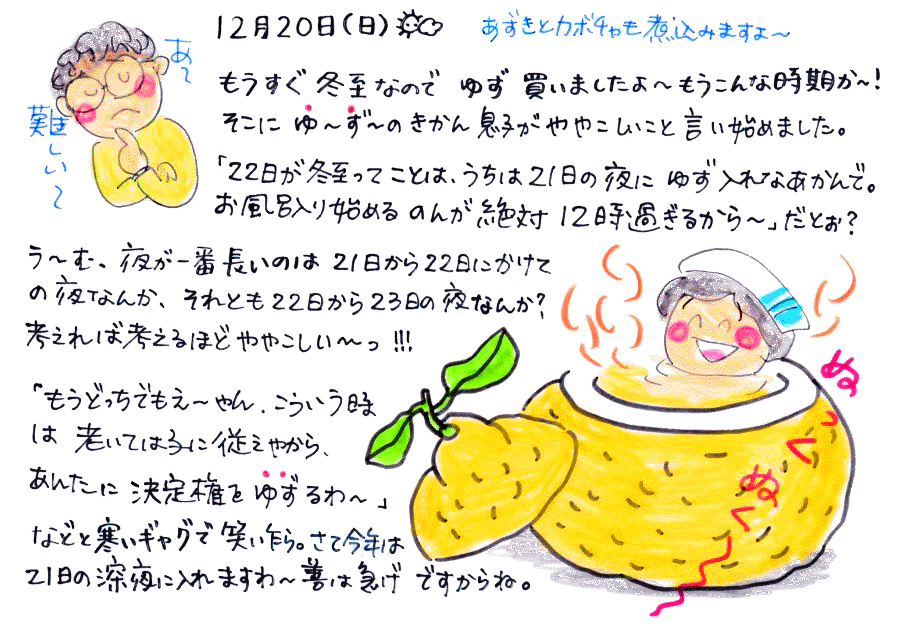 12月20日(日)
あずきとカボチャも煮込みますよ～
あ～
難しい～
もうすぐ 冬至なので ゆず 買いましたよ～もうこんな時期か～!
そこに ゆ～ず～のきかん 息子がややこしいこと言い始めました。
「22日が冬至ってことは、うちは21日の夜に ゆず入れなあかんで。
お風呂入り始めるのんが 絶対 12時過ぎるから～」だとぉ?
う～む、夜が一番長いのは 21日から22日にかけて
の夜なんか、それとも22日から23日の夜なんか?
考えれば考えるほどややこしい～っ!!!
「もうどっちでもえ～やん、こういう時
は 老いては子に従えやから、
あんたに 決定権を ゆずるわ～」
などと寒いギャグで 笑い乍ら。さて今年は
21日の深夜に入れますわ～ 善は急げ ですからね。
ぬっく
ぬく